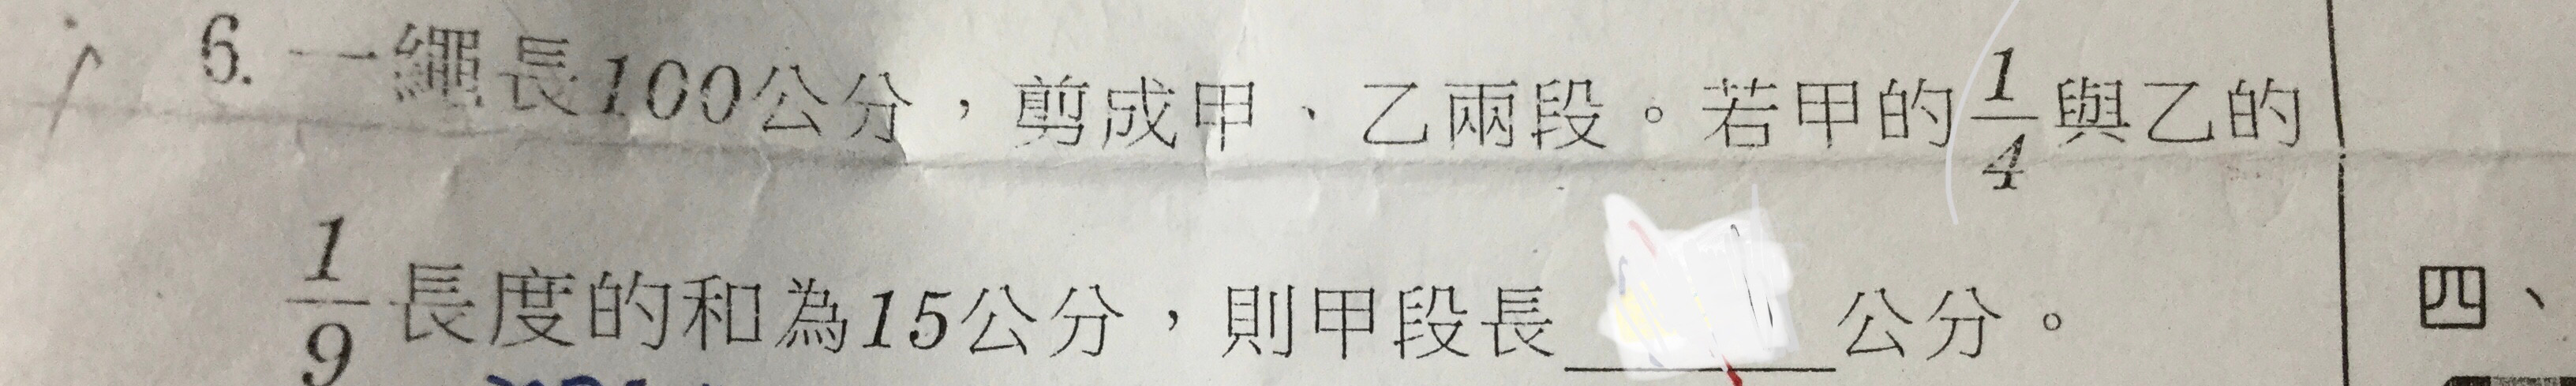 6. 一繩長100公分，剪成甲、乙兩段。若甲的1/4與乙的
1/9長度的和為15公分，則甲段長____公分。
四、